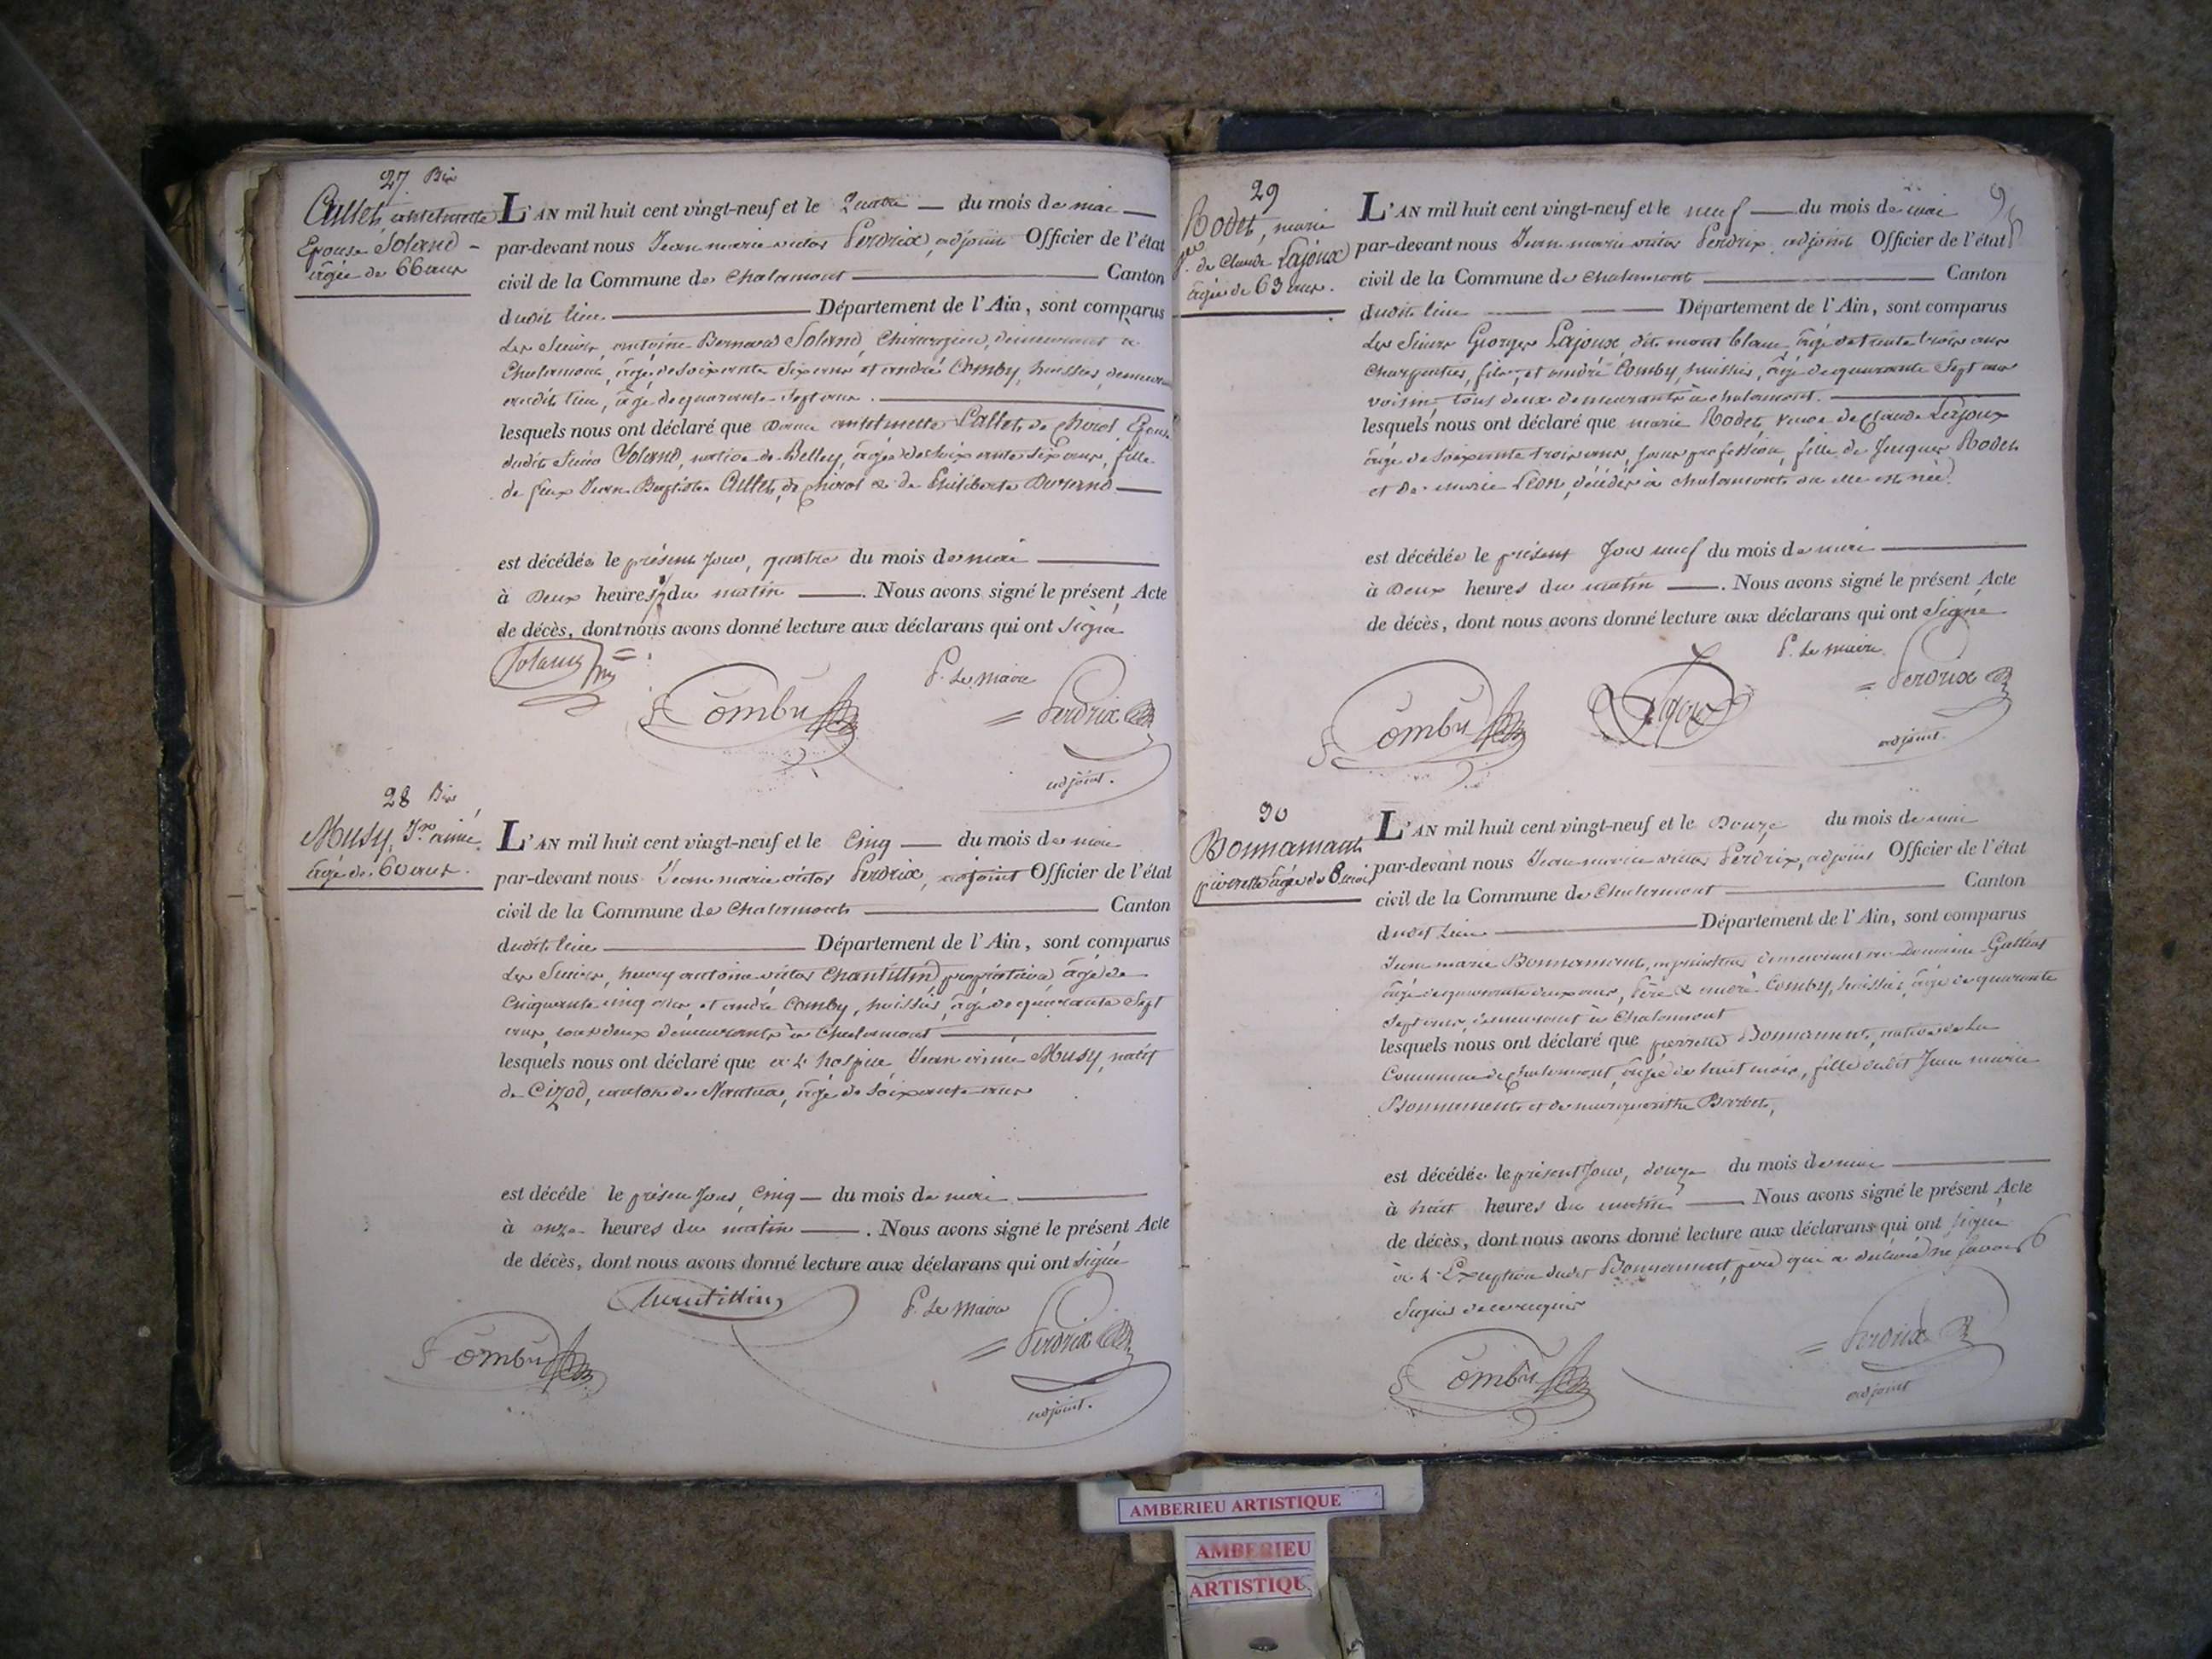 27 Bis
Cullet, anthelmette
Epouse Soland
âgée de 66 ans
L'AN mil huit cent vingt-neuf et le Quatre du mois de mai
par-devant nous Jean marie victor Perdrix, adjoint Officier de l'état
civil de la Commune de Chalamont Canton
dudit lieu Département de l'Ain, sont comparus
Les Sieurs, antoine Bernard Soland, Chirurgien, demeurant à
Chalamont, âgé de soixante six ans et andré Comby, huissier, demeurant
audit lieu, âgé de quarante-sept ans.
lesquels nous ont déclaré que Dame anthelmette Cullet, de Epouse
dudit Sieur Soland, native de Belley, âgée de soixante six ans, fille
de feux Jean Baptiste Cullet, de & de Philiberte Durand
est décédée le présent Jour, quatre du mois de mai
à Deux heures 1/2 du matin. Nous avons signé le présent Acte
de décès, dont nous avons donné lecture aux déclarans qui ont signé
Soland
Comby
P. Le Maire
Perdrix
adjoint.
28 Bis
Musy, Jn aimé
âgé de 60 ans.
L'AN mil huit cent vingt-neuf et le Cinq du mois de mai
par-devant nous Jean marie victor Perdrix, adjoint Officier de l'état
civil de la Commune de Chalamont Canton
dudit lieu Département de l'Ain, sont comparus
Les Sieurs, henry antoine victor Chantillin propriétaire, âgé de
Cinquante cinq ans, et andré Comby, huissier, âgé de quarante Sept
ans, tous deux demeurants à Chalamont
lesquels nous ont déclaré que à L'hospice, Jean aimé Musy, natif
de Cizod, canton de Nantua, âgé de soixante ans
est décédé le présent Jour, Cinq du mois de mai
à onze heures du matin. Nous avons signé le présent Acte
de décès, dont nous avons donné lecture aux déclarans qui ont signé
Chantillin
P. Le Maire
Comby
Perdrix
adjoint.
29
Rodet, marie
ve. de Claude Lajoux
âgée de 63 ans.
L'AN mil huit cent vingt-neuf et le neuf du mois de mai
par-devant nous Jean marie victor Perdrix, adjoint Officier de l'état
civil de la Commune de Chalamont Canton
dudit lieu Département de l'Ain, sont comparus
Les Sieurs Georges Lajoux, dit mont blanc, âgé de trente trois ans
Charpentier, fils, et andré Comby, huissier, âgé de quarante Sept ans
voisin tous deux demeurants à chalamont.
lesquels nous ont déclaré que marie Rodet, veuve de Claude Lajoux
âgée de soixante trois ans, sans profession, fille de Jacques Rodet
et de marie Léon, décédés à chalamont où elle est née
est décédée le présent Jour neuf du mois de mai
à Deux heures du matin. Nous avons signé le présent Acte
de décès, dont nous avons donné lecture aux déclarans qui ont signé
P. Le maire
Comby
Lajoux
Perdrix
adjoint.
30
Bonnamant
pierrette âgée de 8 mois
L'AN mil huit cent vingt-neuf et le Douze du mois de mai
par-devant nous Jean marie victor Perdrix, adjoint Officier de l'état
civil de la Commune de Chalamont Canton
dudit Lieu Département de l'Ain, sont comparus
Jean marie Bonnamant, demeurant au Domaine
âgé de quarante deux ans, Père & andré Comby, huissier, âgé de quarante
Sept ans, demeurant à Chalamont
lesquels nous ont déclaré que pierrette Bonnamant, native de La
Commune de Chalamont, âgée de huit mois, fille dudit Jean marie
Bonnamant et de marguerithe Barbet,
est décédée le présent Jour, douze du mois de mai
à huit heures du matin. Nous avons signé le présent Acte
de décès, dont nous avons donné lecture aux déclarans qui ont signé
à L'Exception dudit Bonnamant, père qui a déclaré ne savoir
Signer de ce requis
Comby
Perdrix
adjoint
AMBERIEU ARTISTIQUE
AMBERIEU
ARTISTIQU